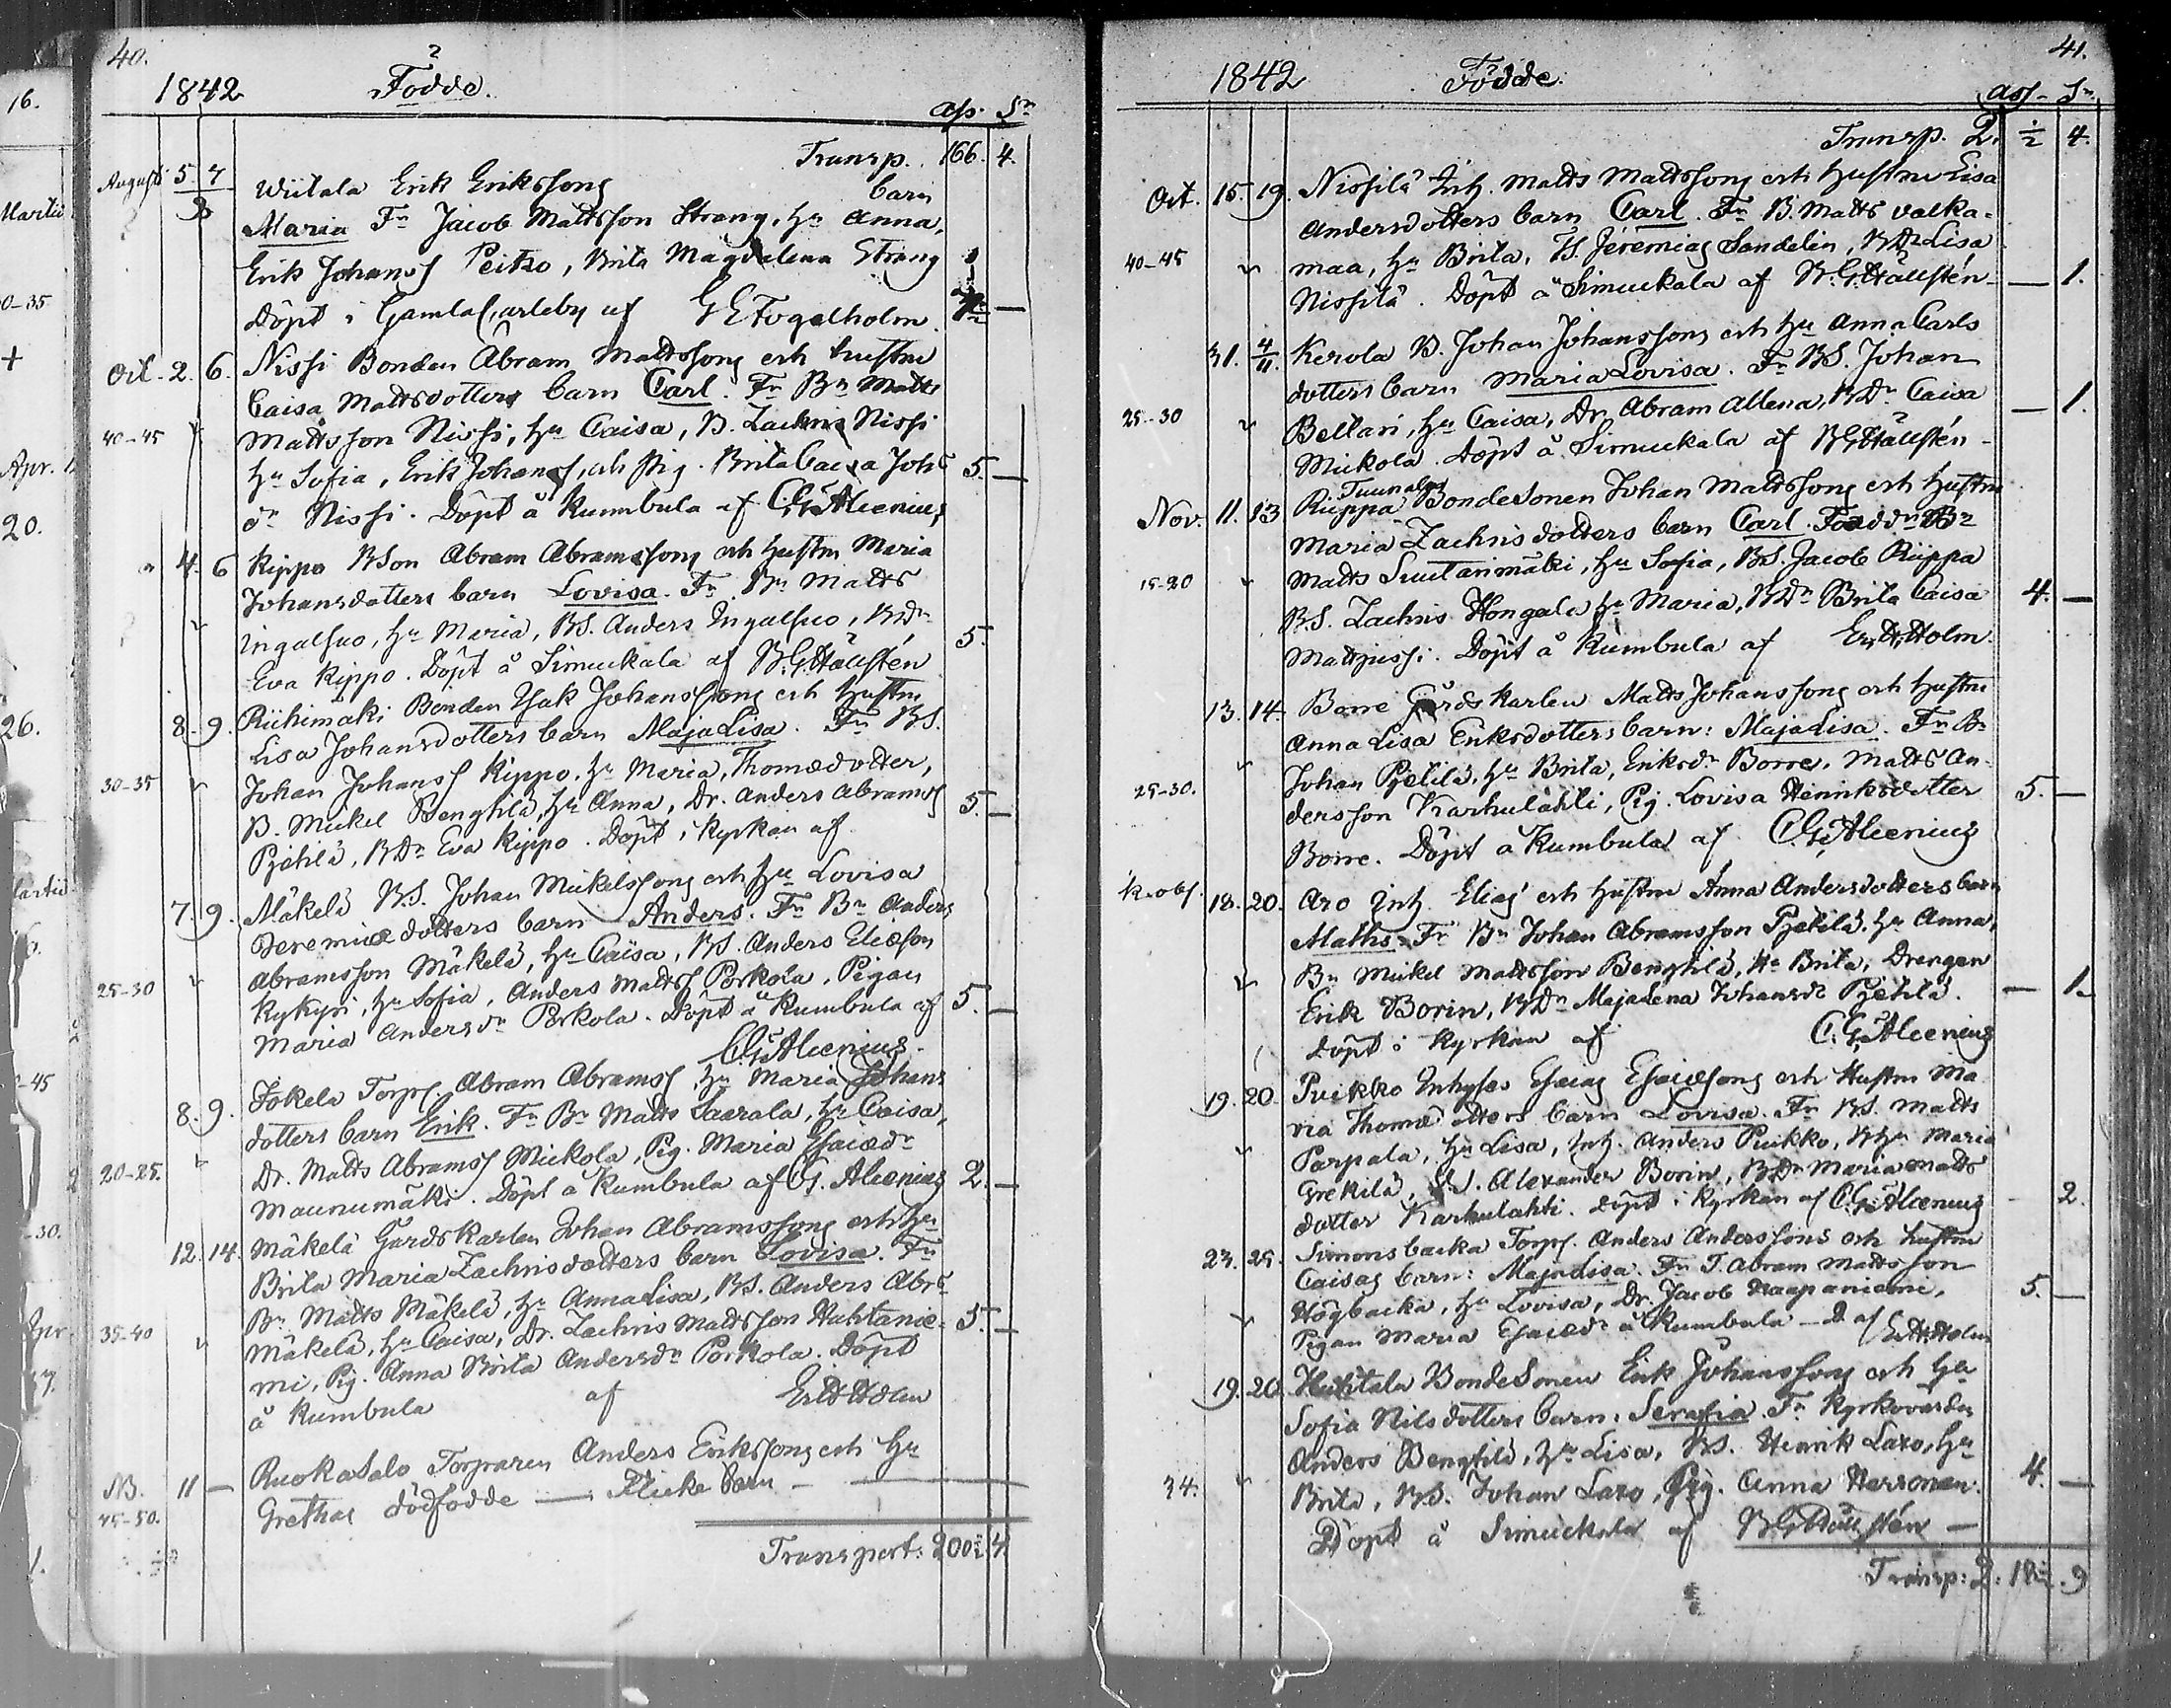 40.
1842 Födde.
ass. Sr
Transp. 166. 4.
August 5 7/8 Wiitala Erik Erikssons barn
Maria Fr Jacob Mattsson Strang, hu Anna,
Erik Johanss Peitso, Brita Magdalena Strang
Döpt i Gamlacarleby af G E Fogelholm. 1/2 —
Oct. 2. 6. Nissi Bonden Abram Mattssons och hustru
Caisa Mattsdotters barn Carl. Fr Bn Matts
40-45 Mattsson Nissi, hu Caisa, B. Zachris Nissi
hu Sofia, Erik Johanss, och Pig. Brita Caisa Johs 5. —
dr Nissi. Döpt å Kumbula af C.G. Alcenius
" 4. 6 Kippo BSon Abram Abramssons och hustru Maria
Johansdotters barn Lovisa. Fr. Bn Matts
Ingalsuo, hu Maria, BS. Anders Ingalsuo, BDr 5.
Eva Kippo. Döpt å Simuckala af B.G. Hällstén
8. 9. Riihimäki Bonden Isak Johanssons och hustru
Lisa Johansdotters barn Maja Lisa. Fr BS.
30-35 Johan Johanss Kippo, hu Maria, Thomædotter,
B. Mickel Benghilä, hu Anna, Dr. Anders Abramss 5. —
Pjetilä, BDr Eva Kippo. Döpt i Kyrkan af
7. 9. Mäkelä BS. Johan Mickelssons och hu Lovisa
Jeremiæ dotters barn Anders. Fr Bn Anders
25-30 Abramsson Mäkelä, hu Caisa, BS. Anders Eliæson
Kykyri, hu Sofia, Anders Matss Porkola, Pigan 5. —
Maria Andersdr Porkola. Döpt å Kumbula af
C.G. Alcenius.
8. 9. Jokela Torp. Abram Abramss, hu Maria Johans
dotters barn Erik. Fr Bn Matts Saarala, hu Caisa,
20-25. Dr. Matts Abramss Mickola, Pig. Maria Esaiædr
Maunumäki. Döpt å Kumbula af C.G. Alcenius 2. —
12. 14. Mäkelä Gårdskarlen Johan Abramssons och hu
Brita Maria Zachrisdotters barn Lovisa. Fr
Bn Matts Mäkelä, hu Anna Lisa, BS. Anders Abrs
35-40 Mäkelä, hu Caisa, Dr. Zachris Mattsson Huhtanie- 5. —
mi, Pig. Anna Brita Andersdr Porkola. Döpt
å Kumbula af Er. A. Holm
NB. 11 — RuokaSalo Torparen Anders Erikssons och hu
45-50. Grethas dödfödde — Flicke barn —
Transport: 200 1/2. 4
41.
1842 Födde.
ass. Sr
Transp. 2. 1/2 4.
Oct. 15. 19. Nissilä Inh. Matts Mattssons och hustru Lisa
Andersdotters barn Carl. Fr B. Matts Valka-
40-45 maa, hu Brita, Is. Jeremias Sandelin, BDr Lisa
Nissilä. Döpt å Simuckala af B.G. Hällstén — 1.
31. 4/11. Kerola B. Johan Johanssons och hu Anna Carls
dotters barn Maria Lovisa. Fr BS. Johan
25-30 Bellari, hu Caisa, Dr. Abram Allena, BDr Caisa — 1.
Mickola. Döpt å Simuckala af B.G. Hällstén
Tuunalas
Nov. 11. 13 Riippa BondeSonen Johan Mattssons och hustru
Maria Zachrisdotters barn Carl. Faddr Bn
15-20 Matts Luutarimäki, hu Sofia, BS. Jacob Riippa
BS. Zachris Hongala hu Maria, BDr Brita Caisa 4. —
Mattjussi. Döpt å Kumbula af Er. A. Holm.
13. 14. Borre Gårdskarlen Matts Johanssons och hustru
Anna Lisa Eriksdotters barn: Maja Lisa. Fr Bn
Johan Pjetilä, hu Brita, Eriksdr Borre, Matts An-
25-30. dersson Karhulahti, Pig. Lovisa Henriksdotter 5. —
Borre. Döpt å Kumbula af C.G. Alcenius
k. obs. 18. 20. Aro Inh. Elias och hustru Anna Andersdotters barn
Mathis. Fr Bn Johan Abramsson Pjetilä, hu Anna,
Bn Mickel Mattsson Benghilä, Hu Brita, Drengen
Erik Borin, BDr Maja Lena Johansdr Pjetilä. — 1.
Döpt i Kyrkan af C.G. Alcenius
19. 20. Puikko Inhyses Esaias Esaiæsons och Hustru Ma
ria Thomædotters barn Lovisa. Fr BS. Matts
Parpala, hu Lisa, Inh. Anders Puikko, BHu Maria
Grekilä, Alexander Borin, BDr Maria Matts
dotter Karhulahti. Döpt i Kyrkan af C.G. Alcenius — 2.
23. 25. Simonsbacka Torp. Anders Anderssons och hustru
Caisas barn: Maja Lisa. Fr T. Abram Mattsson
Högbacka, hu Lovisa, Dr. Jacob Haapaniemi, 5. —
Pigan Maria Esaiædr å Kumbula — D. af Er A Holm
19. 20. Huhtala BondeSonen Erik Johanssons och hu
Sofia Nilsdotters barn: Serafia. Fr Kyrkovärden
Anders Benghilä, hu Lisa, BS. Henrik Laxo, hu
34. Brita, BS. Johan Laxo, Pig. Anna Herronen. 4. —
Döpt å Simuckala af B.G. Hällstén —
Transp: 2. 18 1/2. 9